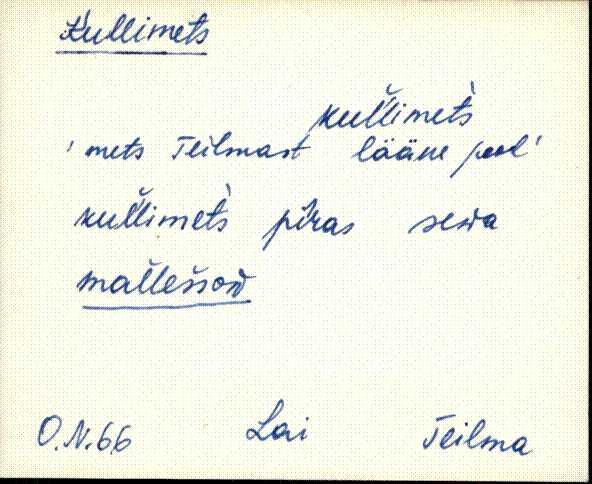 Kullimets
kul̆l̆imet̀s
' mets Teilmast lääne pool '
kul̆l̆imet̀s pīras seda
mal̆l̆es̆sow̆
O.N.66 Lai Teilma